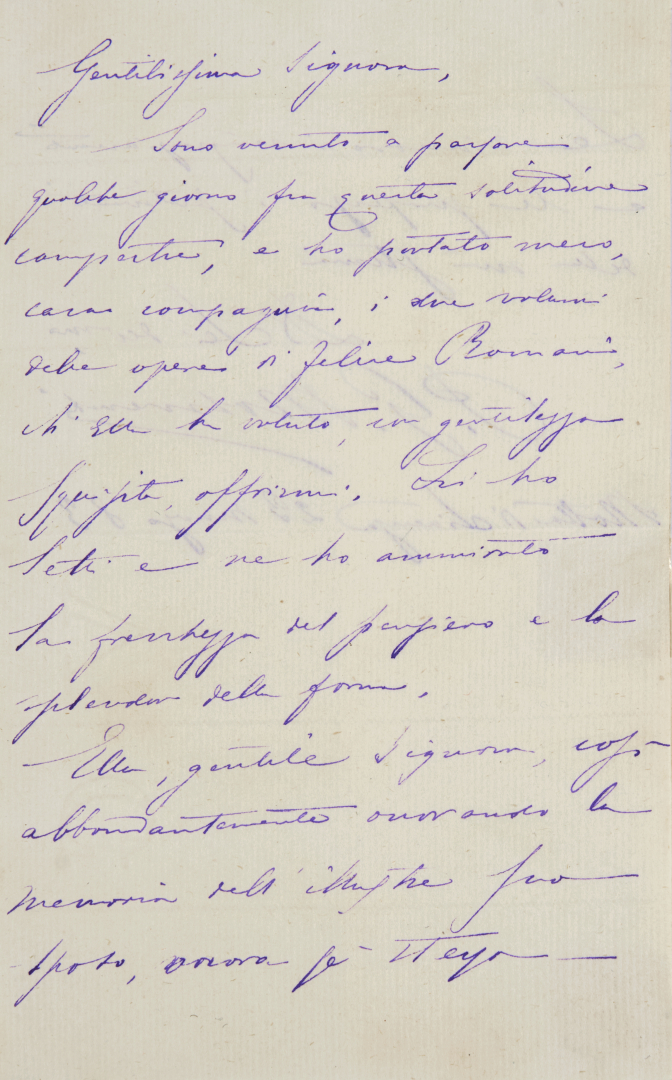 Gentilissima Signora,
Sono venuto a passare
qualche giorno fra questa solitudine
campestre, e ho portato meco,
cara compagnia, i due volumi
delle opere di Felice Romani,
ch'Ella ha voluto, con gentilezza
squisita, offrirmi. Li ho
letti e ne ho ammirato
la freschezza del pensiero e lo
splendore della forma.
Ella, gentile Signora, così
abbondantemente onorando la
memoria dell'illustre suo
sposo, onora se stessa